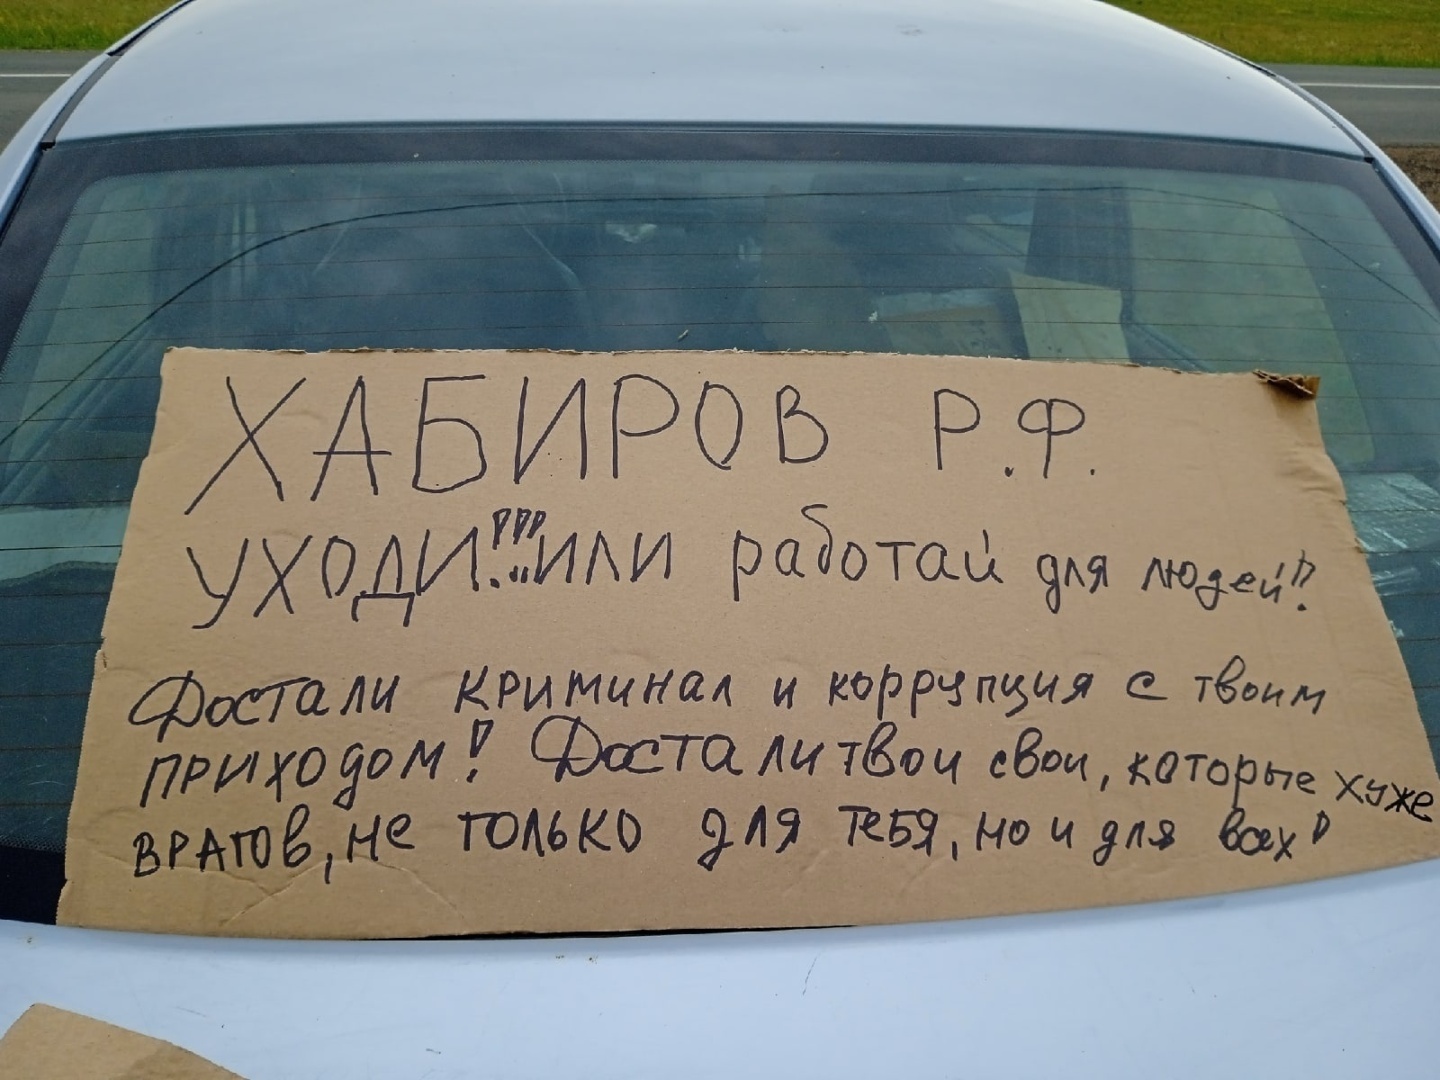 ХАБИРОВ Р.Ф.
УХОДИ!!!...ИЛИ работай для людей!!
Достали криминал и коррупция с твоим
приходом! Достали твои свои, которые хуже
врагов, не только для тебя, но и для всех!